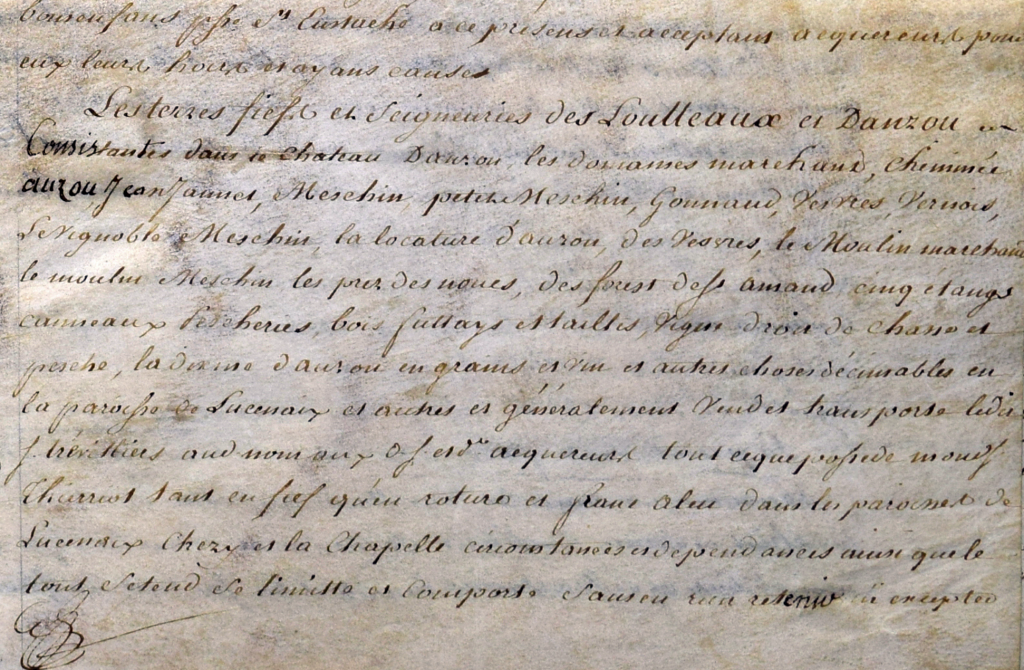 bonsenfans psse St Eustache a ce présens et aceptant acquereurs pour
eux leurs hoirs et ayans causes
Les terres fiefs et Seigneuries des Loulleaux et Dauzou
Consistantes dans le Chateau Dauzou, les domaines marchaud, Chemmée
auzou Jean Jaunet, Meschin, petit Meschin, Gounaud, Vesvres, Vernois,
Le Vignoble Meschin, la locature d'auzou, des Vesvres, le Moulin marchaud
le moulin Meschin, les prez des noues, des forest de St amand, cinq étangs
canneaux Pescheries, bois futtays et taillis, Vigne droit de chasse et
pesche, la dixme d'auzou en grains et vin et autres choses décimables en
la paroisse de Lucenaix et autres et généralement Vend et transporte ledit
S. aud nom aux d. S. et de acquereurs tout ce que possede mond S.
Thierriot tant en fief qu'en roture et franc aleu dans les paroisses de
Lucenaix Chezy et la Chapelle circonstances et dependances ainsi que le
tout setend se limitte et Comporte Sans en rien retenir ni excepter